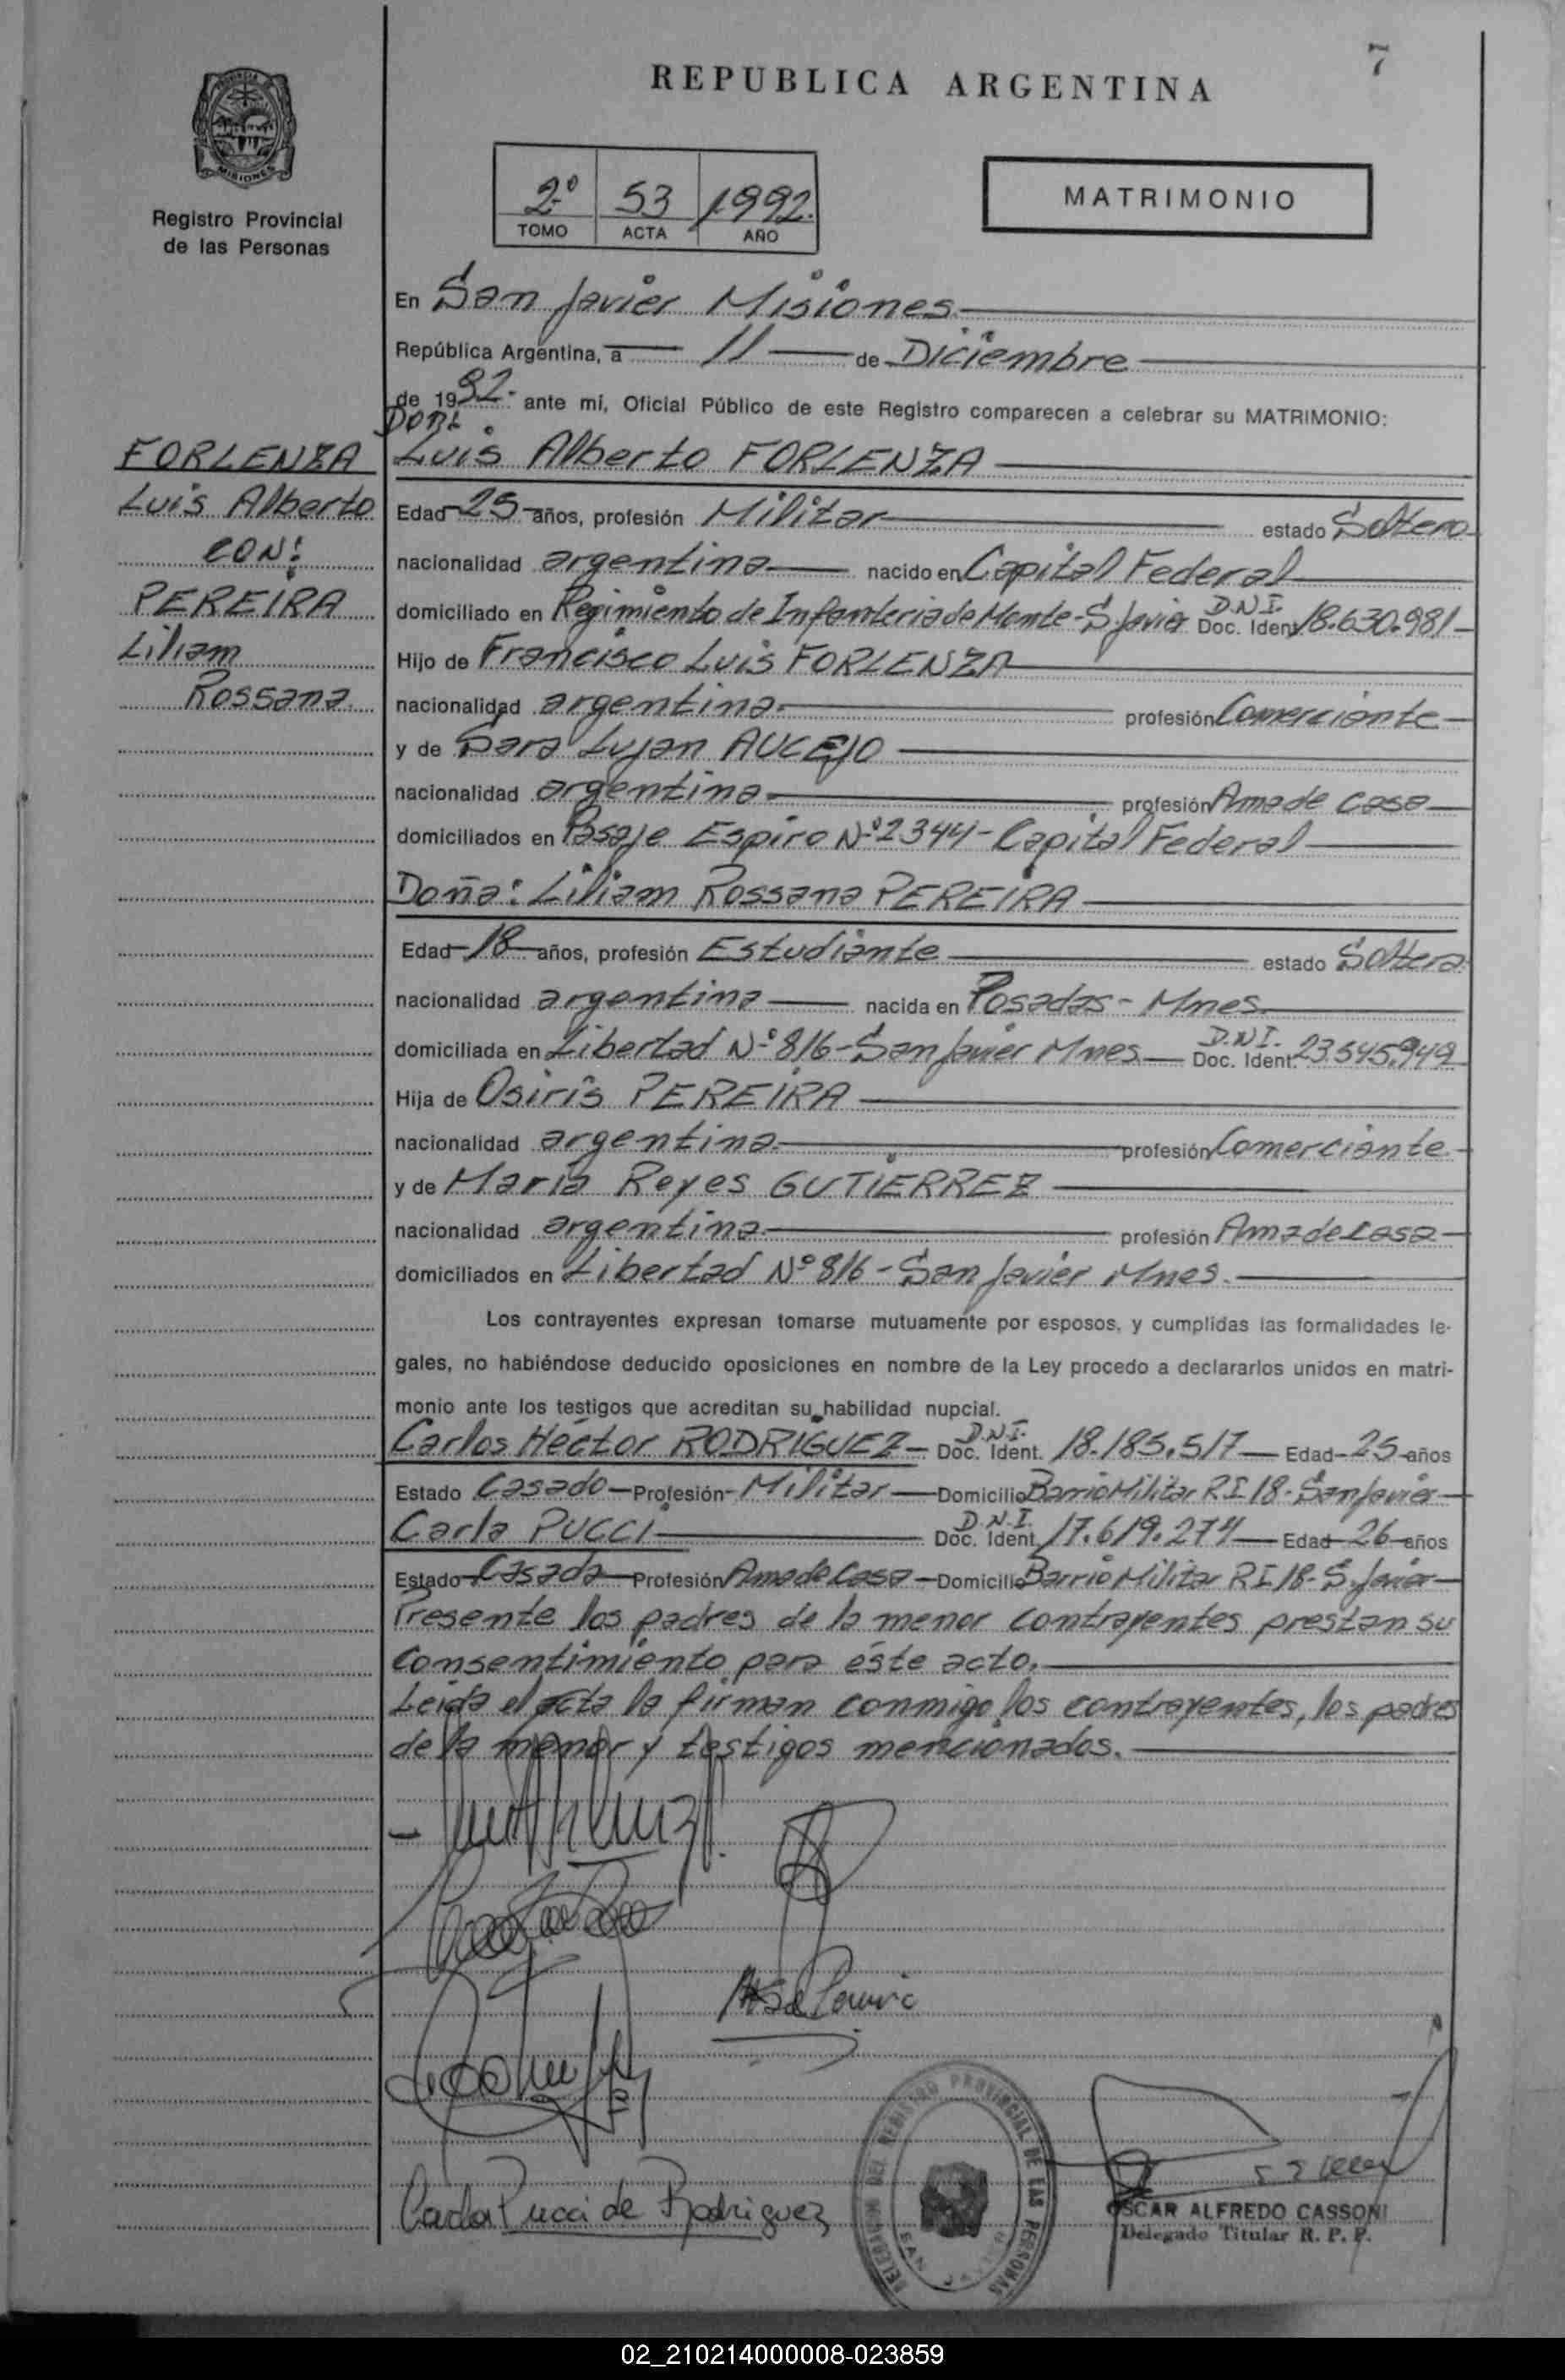 7
REPUBLICA ARGENTINA
MISIONES
Registro Provincial
de las Personas
2º 53 1992.
TOMO ACTA AÑO
MATRIMONIO
En San Javier Misiones
República Argentina, a 11 de Diciembre
de 1992.- ante mí, Oficial Público de este Registro comparecen a celebrar su MATRIMONIO:
FORLENZA
Luis Alberto
CON:
PEREIRA
Liliam
Rossana
Luis Alberto FORLENZA
Edad 25 años, profesión Militar estado Soltero
nacionalidad argentina nacido en Capital Federal
domiciliado en Regimiento de Infanteria de Monte - S. Javier D.N.I. Doc. Ident 18.630.981
Hijo de Francisco Luis FORLENZA
nacionalidad argentina profesión Comerciante
y de Sara Lujan AUCEJO
nacionalidad argentina profesión Ama de casa
domiciliados en Pasaje Espiro Nº 2344 - Capital Federal
Doña: Liliam Rossana PEREIRA
Edad 18 años, profesión Estudiante estado Soltera
nacionalidad argentina nacida en Posadas - Mnes
domiciliada en Libertad Nº 816 - San Javier Mnes D.N.I. Doc. Ident. 23.545.949
Hija de Osiris PEREIRA
nacionalidad argentina profesión Comerciante
y de María Reyes GUTIERREZ
nacionalidad argentina profesión Ama de casa
domiciliados en Libertad Nº 816 - San Javier Mnes.
Los contrayentes expresan tomarse mutuamente por esposos, y cumplidas las formalidades le-
gales, no habiéndose deducido oposiciones en nombre de la Ley procedo a declararlos unidos en matri-
monio ante los testigos que acreditan su habilidad nupcial.
Carlos Héctor RODRIGUEZ D.N.I. Doc. Ident. 18.185.517 Edad 25 años
Estado Casado Profesión Militar Domicilio Barrio Militar RI 18 - San Javier
Carla PUCCI D.N.I. Doc. Ident. 17.619.274 Edad 26 años
Estado Casada Profesión Ama de Casa Domicilio Barrio Militar RI 18 - S. Javier
Presente los padres de la menor contrayentes prestan su
Consentimiento para éste acto.
Leida el acta la firman conmigo los contrayentes, los padres
de la menor y testigos mencionados.
Carla Pucci de Rodriguez
DELEGACION DEL REGISTRO PROVINCIAL DE LAS PERSONAS
SAN JAVIER
OSCAR ALFREDO CASSONI
Delegado Titular R. P. P.
02_210214000008-023859